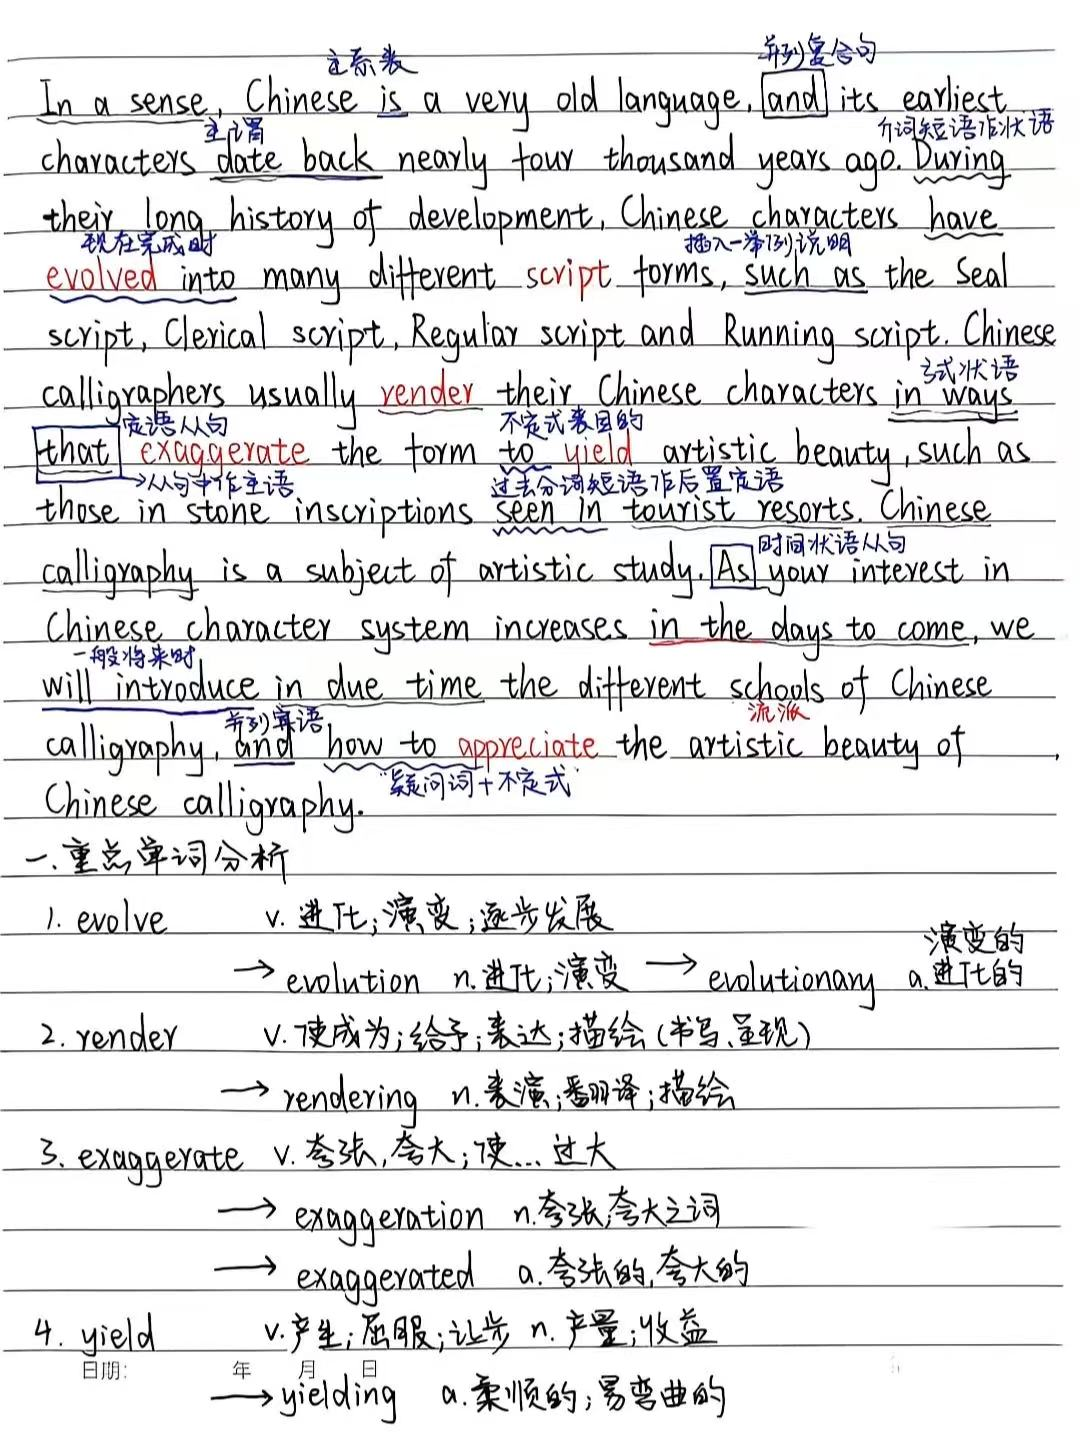 主系表 并列复合句
In a sense, Chinese is a very old language, and its earliest
主谓 介词短语作状语
characters date back nearly four thousand years ago. During
their long history of development, Chinese characters have
现在完成时 插入一举例说明
evolved into many different script forms, such as the Seal
script, Clerical script, Regular script and Running script. Chinese
方式状语
calligraphers usually render their Chinese characters in ways
定语从句 不定式表目的
that exaggerate the form to yield artistic beauty, such as
→从句中作主语 过去分词短语作后置定语
those in stone inscriptions seen in tourist resorts. Chinese
时间状语从句
calligraphy is a subject of artistic study. As your interest in
Chinese character system increases in the days to come, we
一般将来时
will introduce in due time the different schools of Chinese
并列宾语 流派
calligraphy, and how to appreciate the artistic beauty of
"疑问词+不定式"
Chinese calligraphy.
一.重点单词分析
1. evolve v. 进化;演变;逐步发展
演变的
→ evolution n.进化;演变 → evolutionary a.进化的
2. render v.使成为;给予;表达;描绘(书写、呈现)
→ rendering n.表演;翻译;描绘
3. exaggerate v.夸张,夸大;使...过大
→ exaggeration n.夸张,夸大之词
→ exaggerated a.夸张的,夸大的
4. yield v.产生;屈服;让步 n.产量;收益
日期: 年 月 日
→ yielding a.柔顺的;易弯曲的